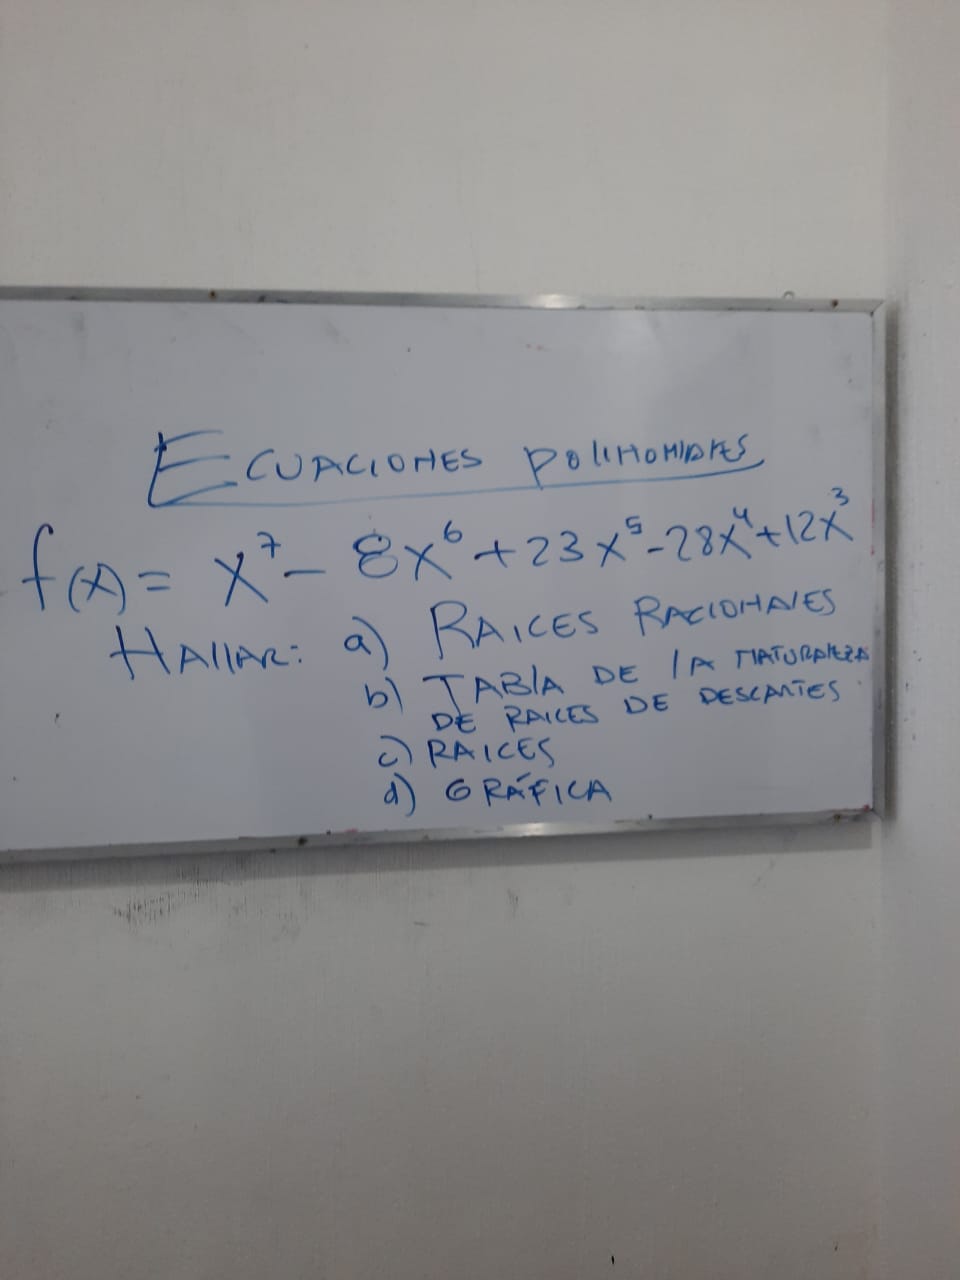 ECUACIONES POLINOMIALES
f(x) = x⁷ - 8x⁶ + 23x⁵ - 28x⁴ + 12x³
HALLAR: a) RAICES RACIONALES
b) TABLA DE LA NATURALEZA
DE RAICES DE DESCARTES
c) RAICES
d) GRÁFICA